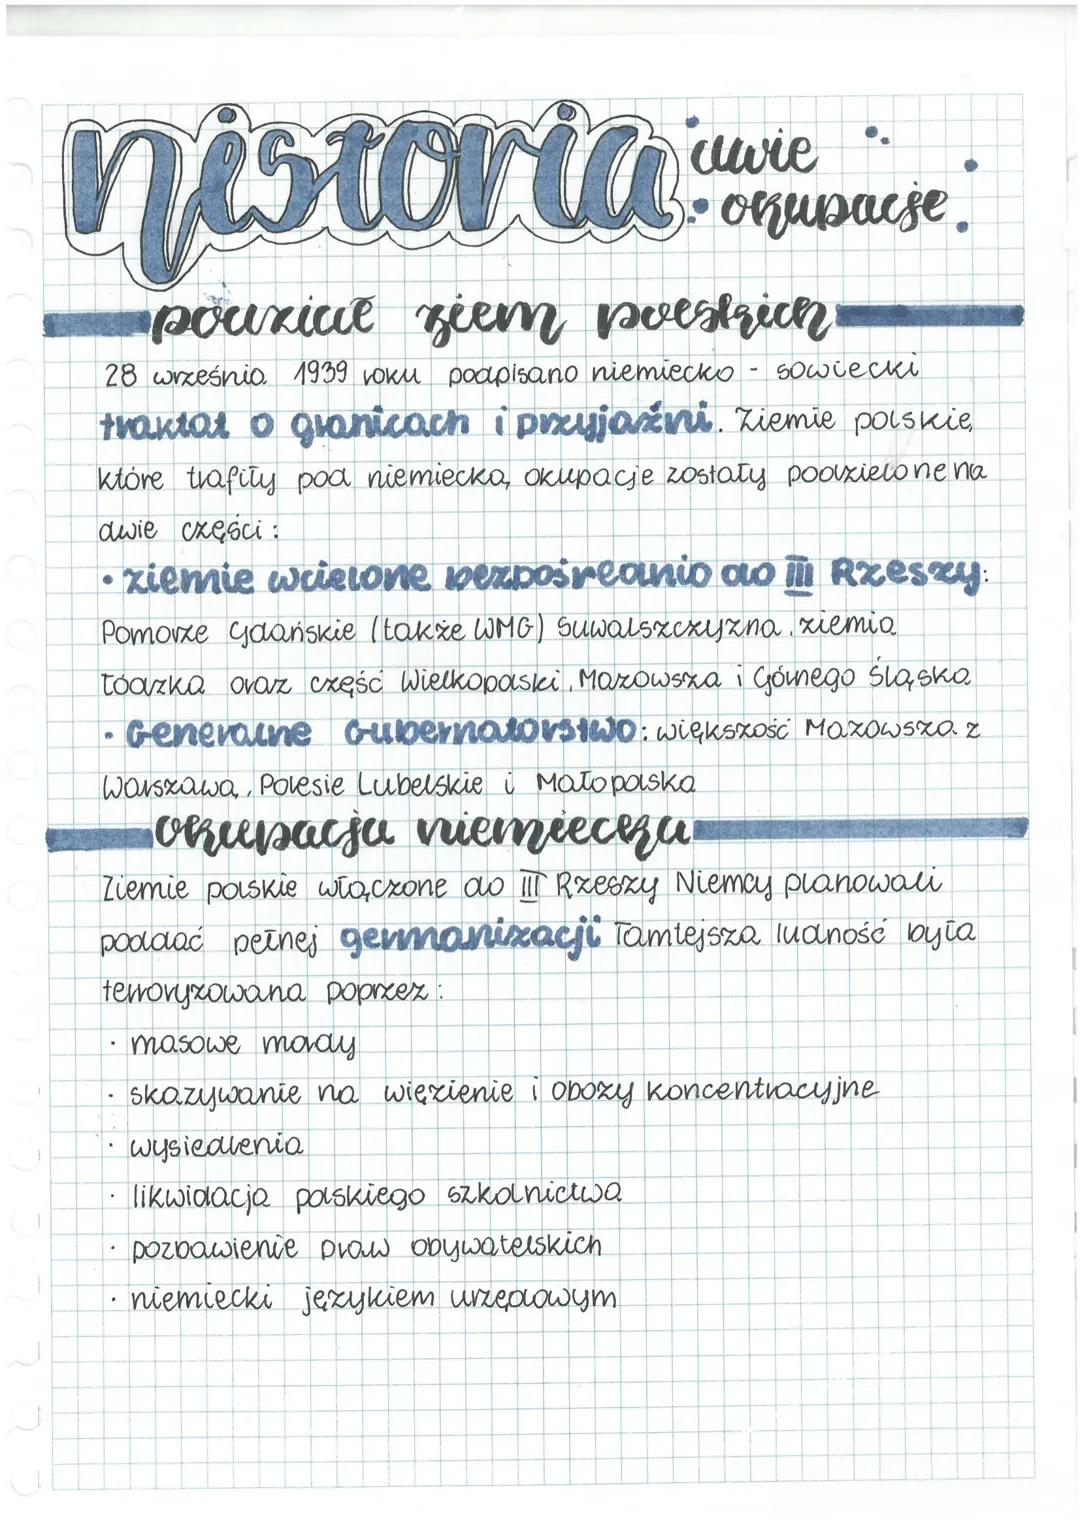 historia
dwie
okupacje
podział ziem polskich
28 września 1939 roku podpisano niemiecko - sowiecki
traktat o granicach i przyjaźni. Ziemie polskie,
które trafiły pod niemiecką okupację zostały podzielone na
dwie części:
• ziemie wcielone bezpośrednio do III Rzeszy:
Pomorze Gdańskie (także WMG) Suwalszczyzna, ziemia
łódzka oraz część Wielkopolski, Mazowsza i Górnego Śląska
• Generalne Gubernatorstwo: większość Mazowsza z
Warszawą, Polesie Lubelskie i Małopolska
okupacja niemiecka
Ziemie polskie włączone do III Rzeszy Niemcy planowali
poddać pełnej germanizacji Tamtejsza ludność była
terroryzowana poprzez:
· masowe mordy
· skazywanie na więzienie i obozy koncentracyjne
· wysiedlenia
· likwidacja polskiego szkolnictwa
· pozbawienie praw obywatelskich
· niemiecki językiem urzędowym